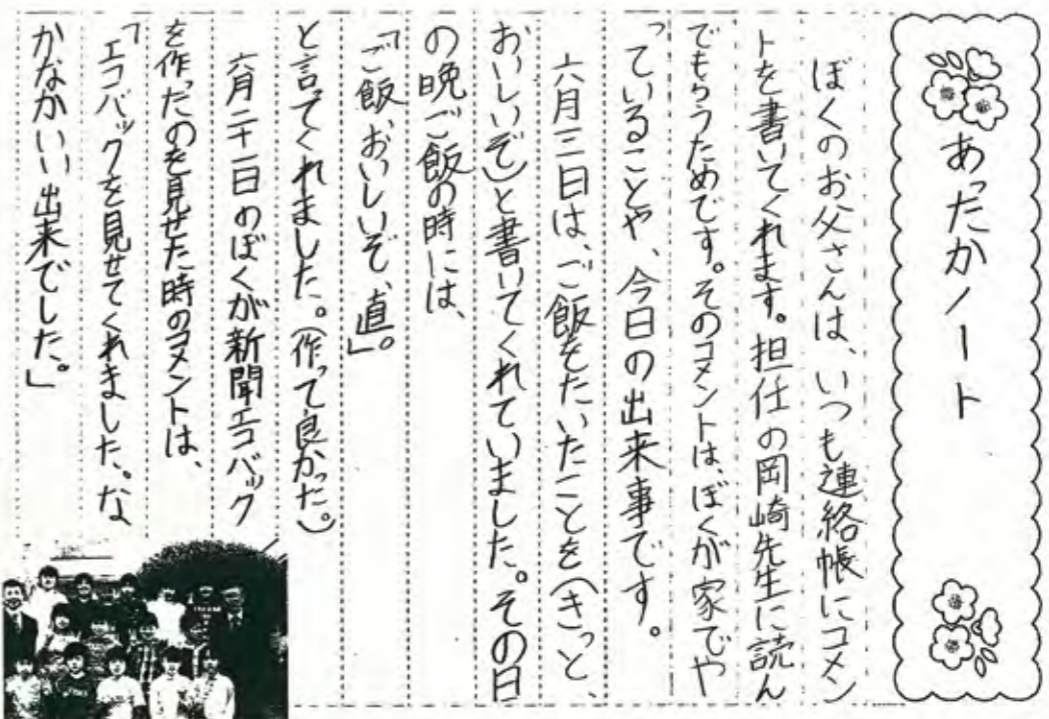 あったかノート
ぼくのお父さんは、いつも連絡帳にコメン
トを書いてくれます。担任の岡崎先生に読ん
でもらうためです。そのコメントは、ぼくが家でや
っていることや、今日の出来事です。
六月三日は、ご飯をたいたことを(きっと、
おいしいぞ)と書いてくれていました。その日
の晩ご飯の時には、
「ご飯、おいしいぞ、直」。
と言ってくれました。(作って良かった。)
六月二十一日のぼくが新聞エコバック
を作ったのを見せた時のコメントは、
「エコバックを見せてくれました。な
かなかいい出来でした。」